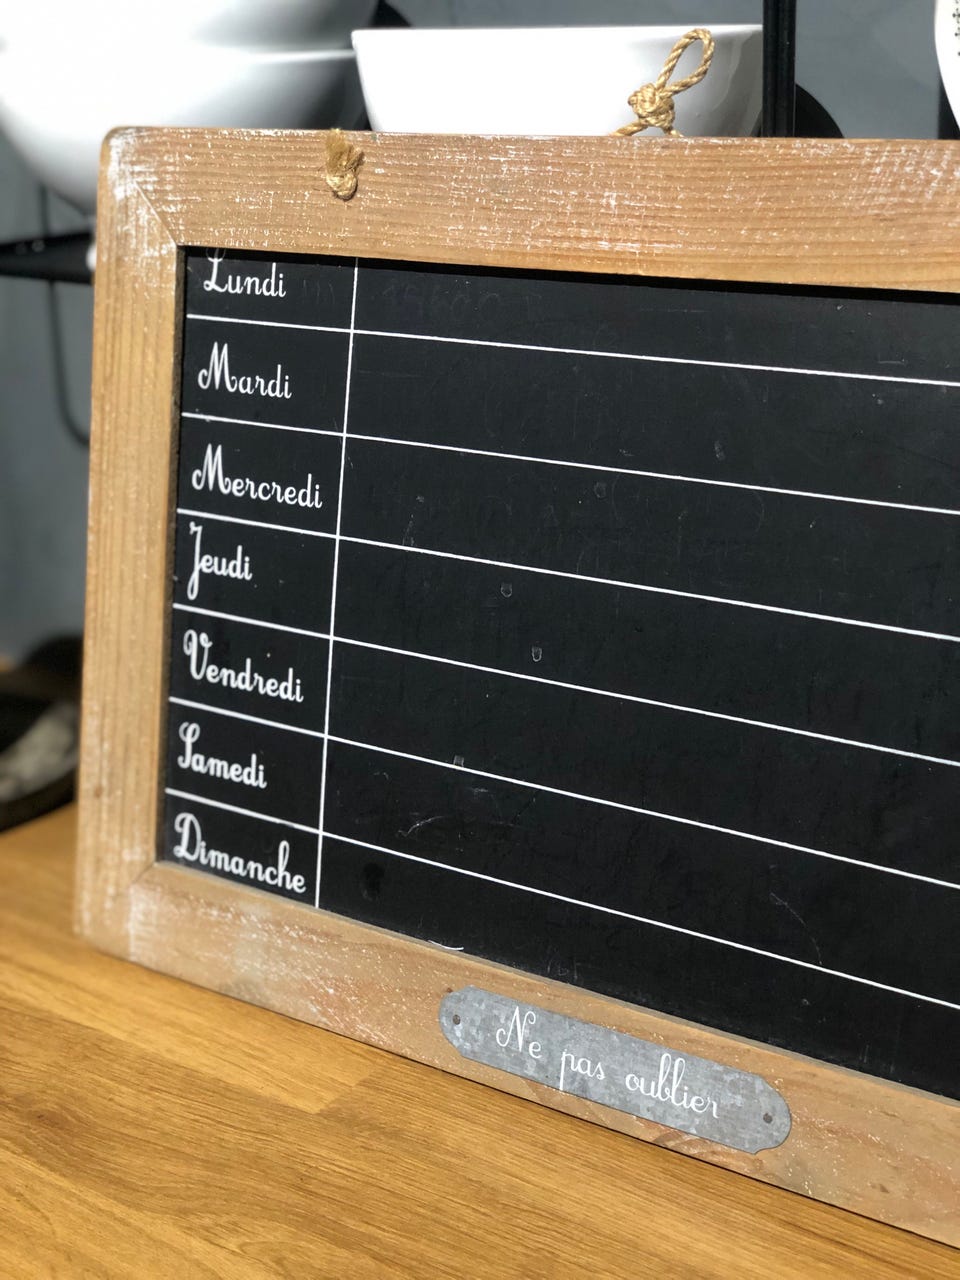 Lundi
Mardi
Mercredi
Jeudi
Vendredi
Samedi
Dimanche
Ne pas oublier